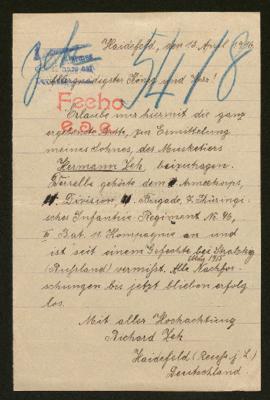 Haidefeld, den 13. April 1916
5418
Allergnädigster König und Herr!
Fecho
Erlaube mir hiermit die ganz
ergebenste Bitte, zur Ermittelung
meines Sohnes, des Musketiers
Hermann Zeh, beizutragen.
Derselbe gehörte dem Armeekorps,
Division, Brigade, 7. Thüringi-
sches Infanterie Regiment No. 96,
Bat. 11. Kompagnie an und
ist seit einem Gefechte bei
März 1915
(Rußland) vermißt. Alle Nachfor-
schungen bis jetzt blieben erfolg
los.
Mit aller Hochachtung
Richard Zeh
Haidefeld (Reuß j. L.)
Deutschland